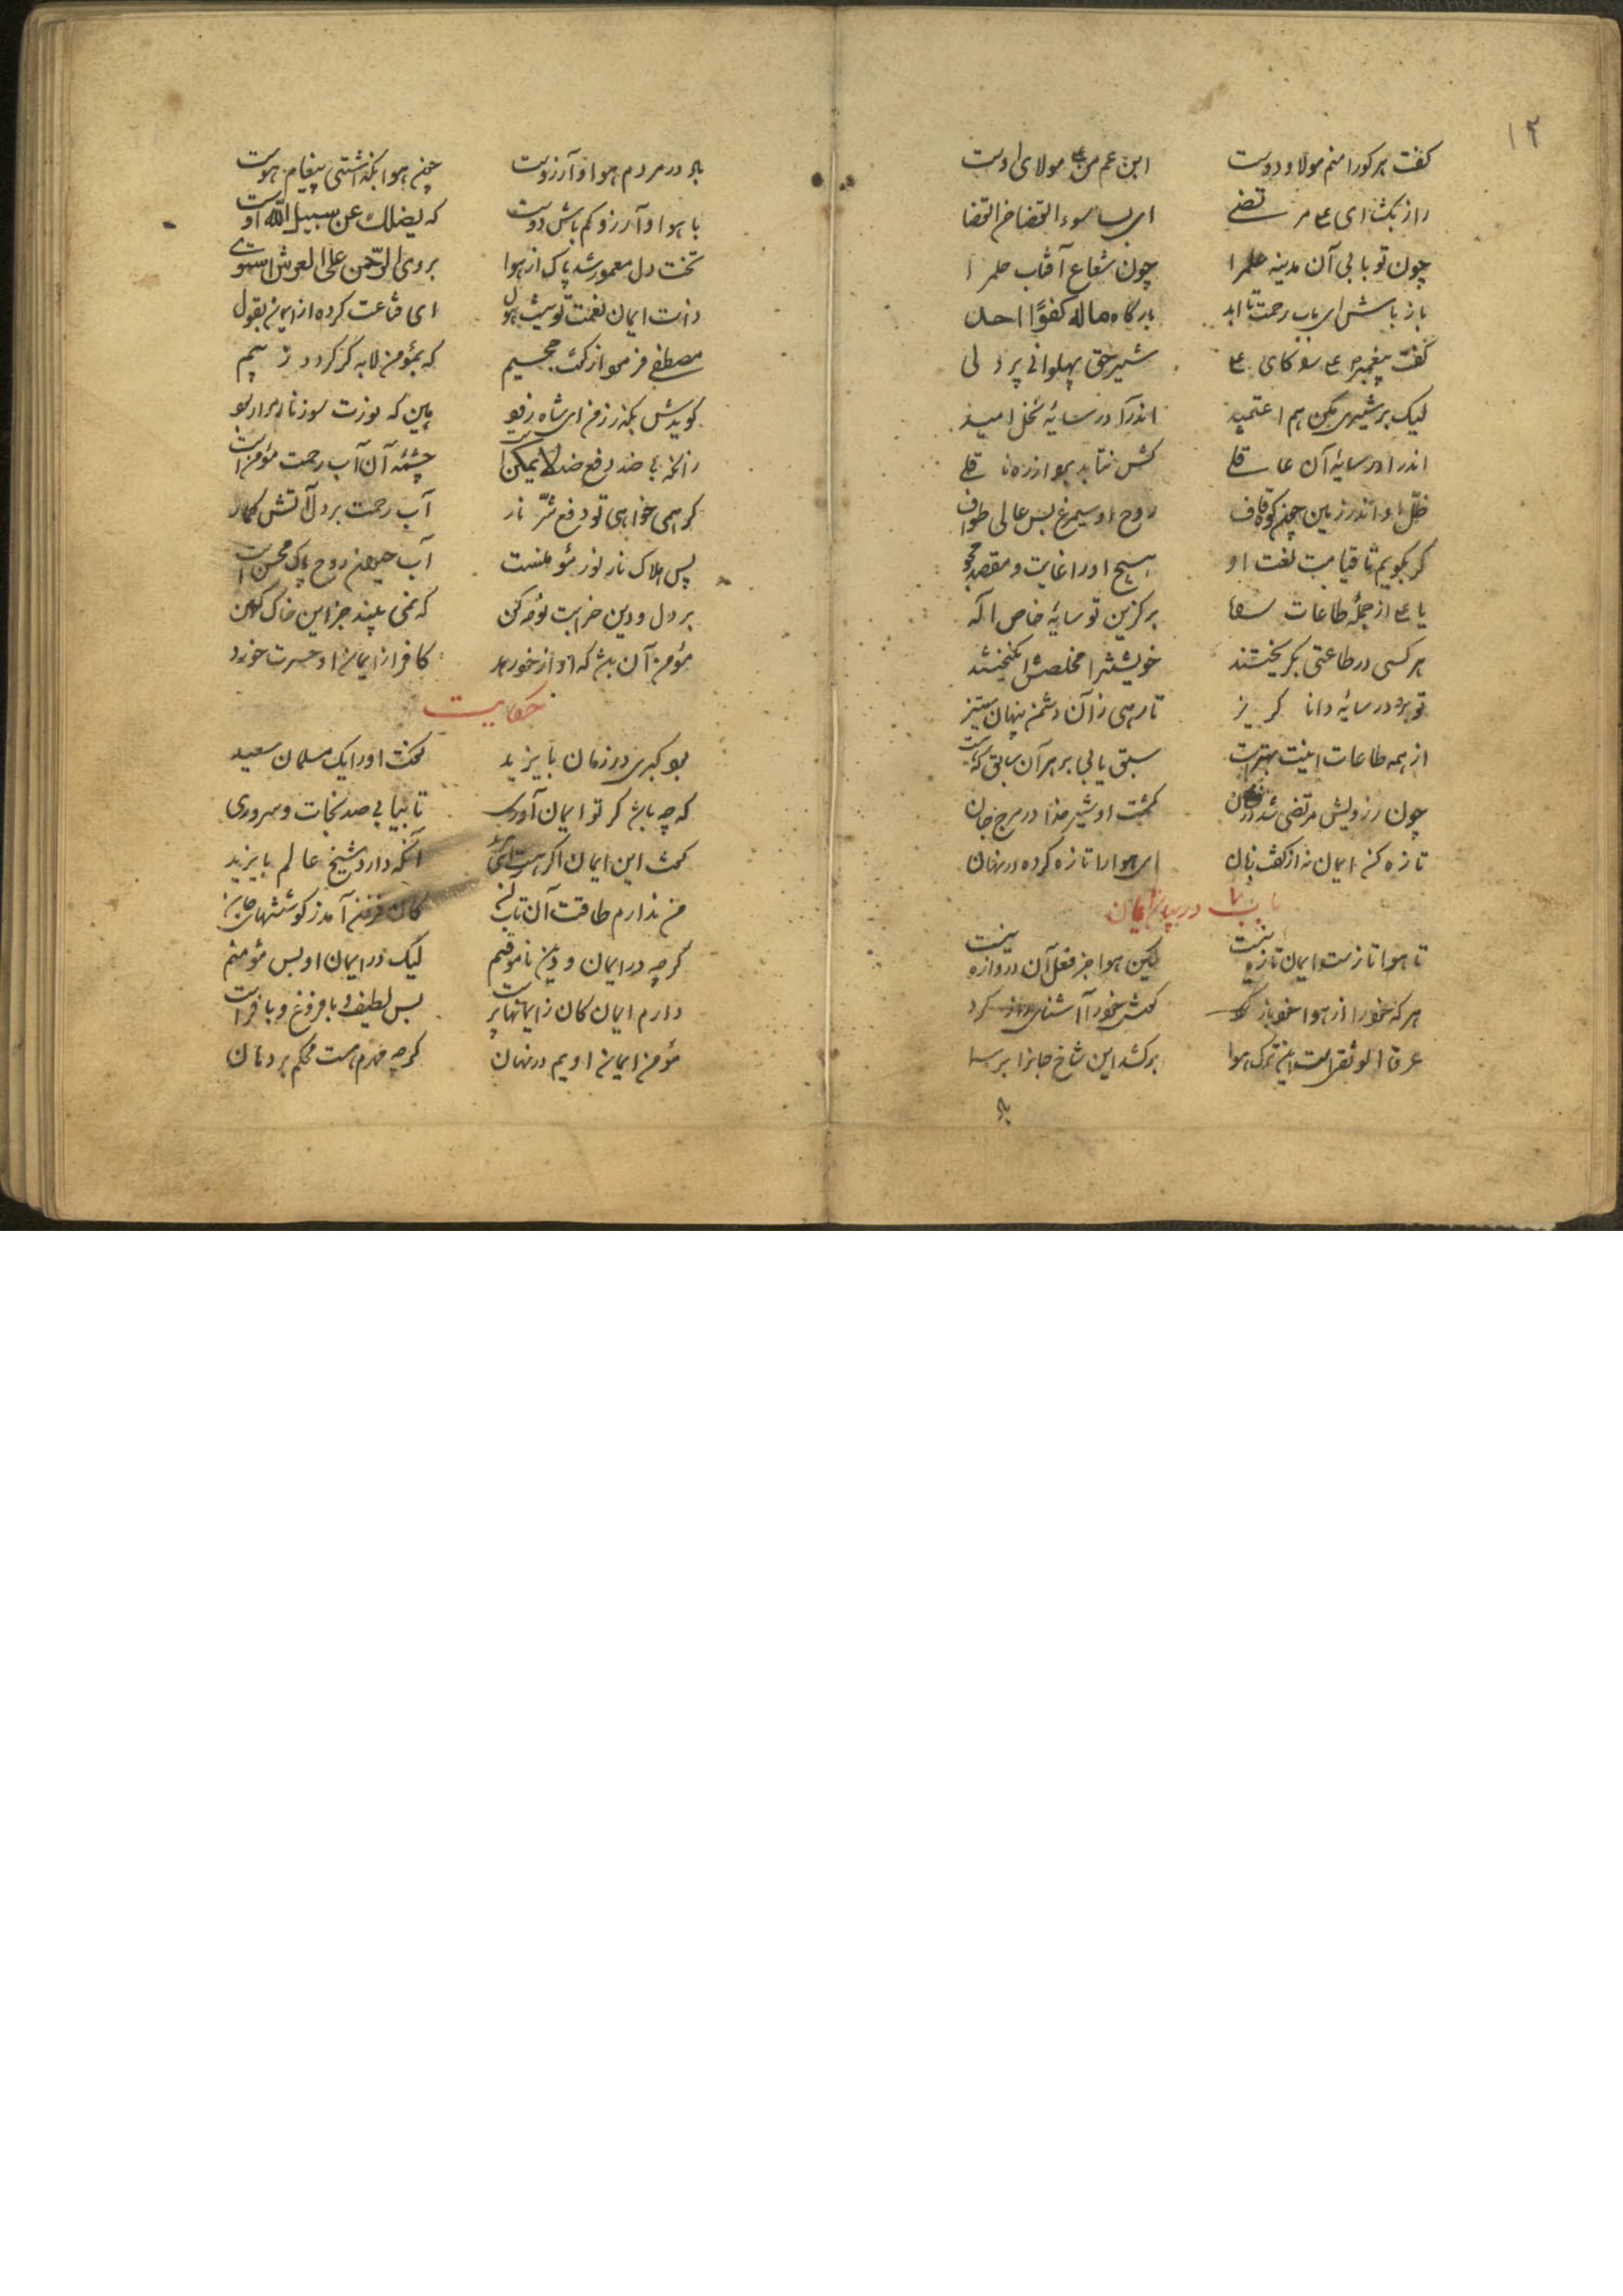 ۱۲
گفت هر کورا منم مولا و دوست ابن عم من علی مولای اوست
راز بگشا ای علی مرتضی ای پس سوء القضا حسن القضا
چون تو بابی آن مدینه علم را چون شعاع آفتاب حلم را
باز باش ای باب رحمت تا ابد بارگاه ما له کفوا احد
گفت پیغمبر علی را کای علی شیر حقی پهلوانی پر دلی
لیک بر شیری مکن هم اعتمید اندرآ در سایهٔ نخل امید
اندرآ در سایهٔ آن عاقلی کش نتابد برد از ره ناقلی
ظلّ او اندر زمین چون کوه قاف روح او سیمرغ بس عالی طواف
گر بگویم تا قیامت نعت او هیچ او را غایت و مقصد مجو
یا علی از جملهٔ طاعات راه برگزین تو سایهٔ خاص اله
هر کسی در طاعتی بگریختند خویشتن را مخلصی انگیختند
تو برو در سایهٔ دانا گریز تا رهی زآن دشمن پنهان ستیز
از همه طاعات اینت بهترست سبق یابی بر هر آن سابق که هست
چون ز رویش مرتضی شد درفشان گشت او شیر خدا در مرج جان
تازه کن ایمان نه از گفت زبان ای هوا را تازه کرده در نهان
باب در بیان ایمان
تا هوا تازست ایمان تازه نیست لیکن هوا جز قفل آن دروازه نیست
هر که خود را از هوا خو باز کرد گوش خود را آشنای راز کرد
عروة الوثقی است این ترک هوا برکشد این شاخ جانرا بر سما
باد
باد در مردم هوا و آرزوست چون هوا بگذاشتی پیغام هوست
با هوا و آرزو کم باش دوست که یضلك عن سبیل الله اوست
تخت دل معمور شد پاک از هوا بر وی الرّحمن علی العرش استوی
ذات ایمان نعمت لوتیست هول ای قناعت کرده از ایمان بقول
مصطفی فرمود از گفت جحیم که بمؤمن لابه گر گردد ز بیم
گویدش بگذر ز من ای شاه زود هین که نورت سوز نارم را ربود
زانکه بی ضد دفع ضد لا یمکن است چشمهٔ آن آب رحمت مؤمن است
گر همی خواهی تو دفع شرّ نار آب رحمت بر دل آتش گمار
پس هلاک نار نور مؤمنست آب حیوان روح پاک محسن است
بر دل و دین خرابت نوحه کن که نمی بیند جز این خاک کهن
مؤمن آن باشد که او از خور کافر از ایمان او حسرت خورد
حکایت
بود گبری در زمان بایزید گفت او را یک مسلمان سعید
که چه باشد گر تو ایمان آوری تا بیابی صد نجات و سروری
گفت این ایمان اگر هست ای مرید آنکه دارد شیخ عالم بایزید
من ندارم طاقت آن تاب آن کان فزون آمد ز کوششهای جان
گرچه در ایمان و دین ناموقنم لیک در ایمان او بس مؤمنم
دارم ایمان کان ز ایمانها برست بس لطیف و با فروغ و با فرست
مؤمن ایمان اویم در نهان گرچه مهرم هست محکم بر دهان